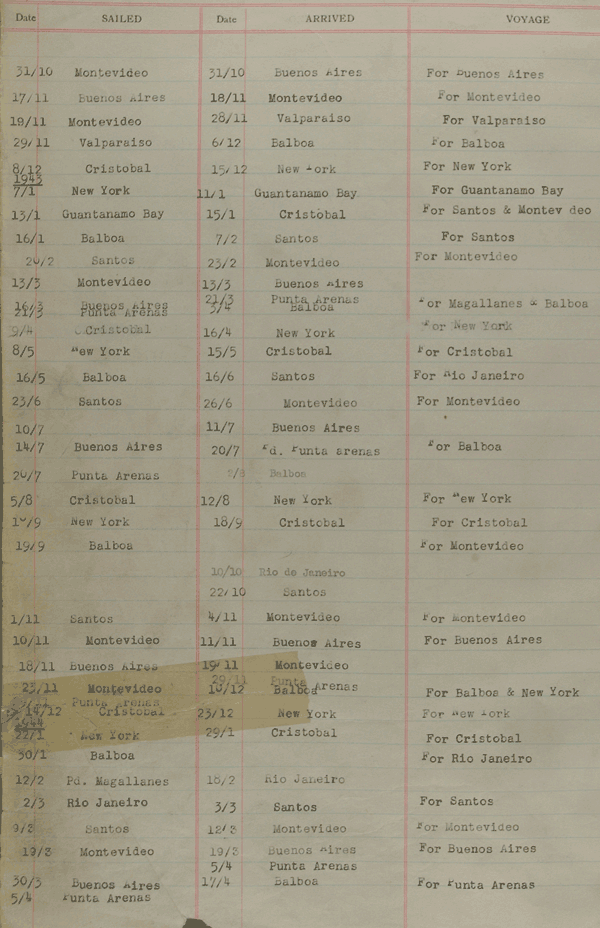 Date SAILED Date ARRIVED VOYAGE
31/10 Montevideo 31/10 Buenos Aires For Buenos Aires
17/11 Buenos Aires 18/11 Montevideo For Montevideo
19/11 Montevideo 28/11 Valparaiso For Valparaiso
29/11 Valparaiso 6/12 Balboa For Balboa
8/12 Cristobal 15/12 New York For New York
1943
7/1 New York 11/1 Guantanamo Bay For Guantanamo Bay
13/1 Guantanamo Bay 15/1 Cristobal For Santos & Montev deo
16/1 Balboa 7/2 Santos For Santos
20/2 Santos 23/2 Montevideo For Montevideo
13/3 Montevideo 13/3 Buenos Aires
16/3 Buenos Aires 21/3 Punta Arenas For Magallanes & Balboa
21/3 Punta Arenas 3/4 Balboa
9/4 Cristobal 16/4 New York For New York
8/5 New York 15/5 Cristobal For Cristobal
16/5 Balboa 16/6 Santos For Rio Janeiro
23/6 Santos 26/6 Montevideo For Montevideo
10/7 11/7 Buenos Aires
14/7 Buenos Aires 20/7 Pd. Punta arenas For Balboa
20/7 Punta Arenas 2/8 Balboa
5/8 Cristobal 12/8 New York For New York
10/9 New York 18/9 Cristobal For Cristobal
19/9 Balboa For Montevideo
10/10 Rio de Janeiro
22/10 Santos
1/11 Santos 4/11 Montevideo For Montevideo
10/11 Montevideo 11/11 Buenos Aires For Buenos Aires
18/11 Buenos Aires 19/11 Montevideo
23/11 Montevideo 29/11 Punta Arenas For Balboa & New York
Punta Arenas 10/12 Balboa
14/12 Cristobal 23/12 New York For New York
1944
22/1 New York 29/1 Cristobal For Cristobal
30/1 Balboa For Rio Janeiro
12/2 Pd. Magallanes 18/2 Rio Janeiro
2/3 Rio Janeiro 3/3 Santos For Santos
9/3 Santos 12/3 Montevideo For Montevideo
19/3 Montevideo 19/3 Buenos Aires For Buenos Aires
5/4 Punta Arenas
30/3 Buenos Aires 17/4 Balboa For Punta Arenas
5/4 Punta Arenas